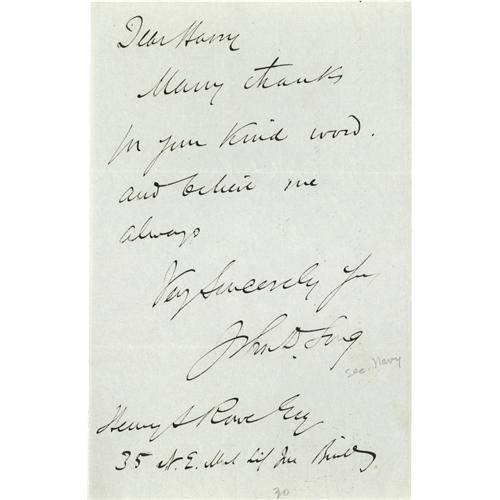 Dear Harry
Many thanks
for your kind word.
and believe me
always
Very Sincerely yrs
John D. Long
Sec. Navy
Henry S Rowe Esq
35 N. E. Mut Lif Ins Build
30